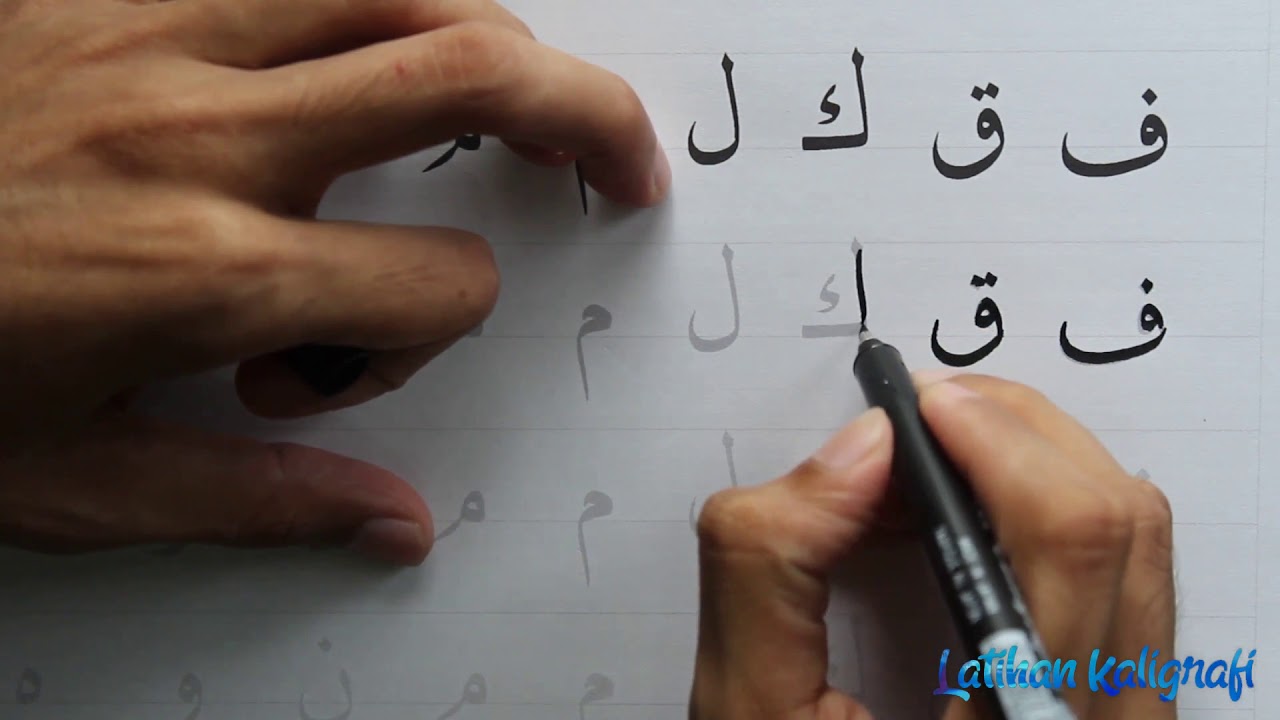 ف ق ك ل م م
ف ق ك ل م
ل م م
م م ن و ه
Latihan Kaligrafi